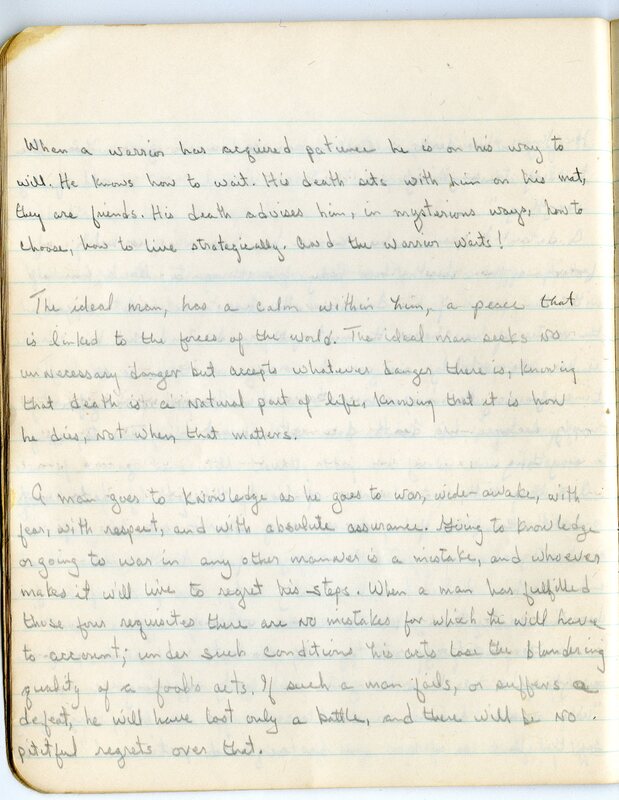 When a warrior has acquired patience he is on his way to
will. He knows how to wait. His death sits with him on his mat,
they are friends. His death advises him, in mysterious ways, how to
choose, how to live strategically. And the warrior waits!
The ideal man, has a calm within him, a peace that
is linked to the forces of the world. The ideal man seeks no
unnecessary danger but accepts whatever danger there is, knowing
that death is a natural part of life, knowing that it is how
he dies, not when that matters.
A man goes to knowledge as he goes to war, wide-awake, with
fear, with respect, and with absolute assurance. Going to knowledge
or going to war in any other manner is a mistake, and whoever
makes it will live to regret his steps. When a man has fulfilled
those four requisites there are no mistakes for which he will have
to account; under such conditions his acts lose the blundering
quality of a fool's acts. If such a man fails, or suffers a
defeat, he will have lost only a battle, and there will be no
pitiful regrets over that.